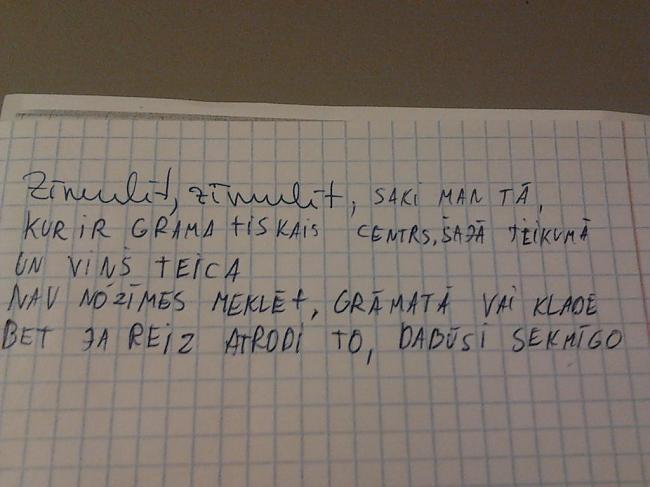 Zīmulīt, zīmulīt, SAKI MAN TĀ,
KUR IR GRAMATISKAIS CENTRS, ŠAJĀ TEIKUMĀ
UN VIŅŠ TEICA
NAV NOZĪMES MEKLĒT, GRĀMATĀ VAI KLADĒ
BET JA REIZ ATRODI TO, DABŪSI SEKMĪGO